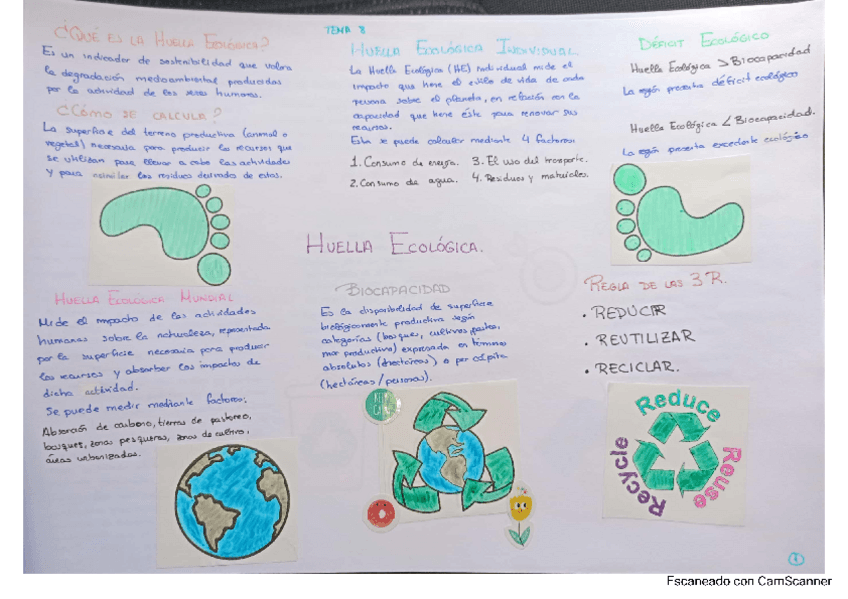 ¿Qué es la Huella Ecológica?
Es un indicador de sostenibilidad que valora
la degradación medioambiental producidas
por la actividad de los seres humanos.
¿Cómo se calcula?
La superficie del terreno productiva (animal o
vegetal) necesaria para producir los recursos que
se utilizan para llevar a cabo las actividades
y para asimilar los residuos derivado de estos.
TEMA 8
Huella Ecológica Individual
La Huella Ecológica (HE) individual mide el
impacto que tiene el estilo de vida de cada
persona sobre el planeta, en relación con la
capacidad que tiene éste para renovar sus
recursos.
Esta se puede calcular mediante 4 factores:
1. Consumo de energía. 3. El uso del transporte.
2. Consumo de agua. 4. Residuos y materiales.
Déficit Ecológico
Huella Ecológica > Biocapacidad
La región presenta déficit ecológico
Huella Ecológica < Biocapacidad.
La región presenta excedente ecológico
Huella Ecológica.
Huella Ecológica Mundial
Mide el impacto de las actividades
humanas sobre la naturaleza, representada
por la superficie necesaria para producir
los recursos y absorber los impactos de
dicha actividad.
Se puede medir mediante factores:
Absorción de carbono, tierras de pastoreo,
bosques, zonas pesqueras, zonas de cultivo,
áreas urbanizadas.
Biocapacidad
Es la disponibilidad de superficie
biológicamente productiva según
categorías (bosques, cultivos, pastos,
mar productivo) expresada en términos
absolutos (hectáreas) o per cápita
(hectáreas / personas).
Regla de las 3 R.
. REDUCIR
. REUTILIZAR
. RECICLAR.
Reduce
Reuse
Recycle
Escaneado con CamScanner